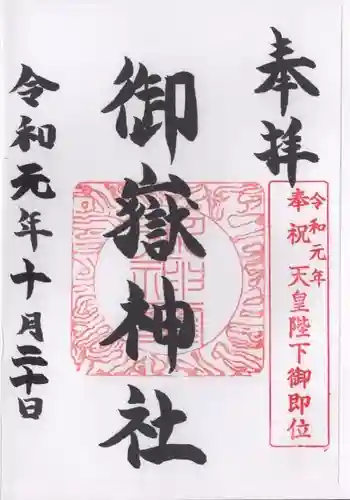 奉拝
令和元年
奉祝 天皇陛下御即位
御嶽神社
令和元年十月二十日